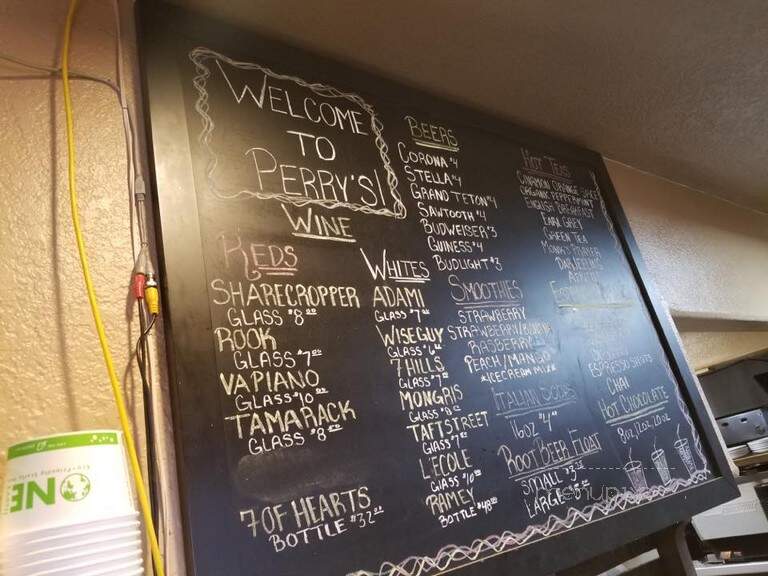 WELCOME
TO
PERRY'S!
WINE
REDS
SHARECROPPER
GLASS $8
ROOK
GLASS $7
VAPIANO
GLASS $10
TAMARACK
GLASS $8
7 OF HEARTS
BOTTLE $32
WHITES
ADAMI
GLASS $7
WISEGUY
GLASS $6
7 HILLS
GLASS $7
MONGRIS
GLASS $8
TAFTSTREET
GLASS $7
L'ECOLE
GLASS $10
RAMEY
BOTTLE $48
BEERS
CORONA $4
STELLA $4
GRAND TETON $4
SAWTOOTH $4
BUDWEISER $3
GUINESS $4
BUDLIGHT $3
SMOOTHIES
STRAWBERRY
STRAWBERRY/
RASBERRY
PEACH/MANGO
ICECREAM MIX
ITALIAN SODAS
16OZ $4
ROOT BEER FLOAT
SMALL
LARGE
HOT TEAS
CINNAMON ORANGE SPICE
ORGANIC PEPPERMINT
ENGLISH BREAKFAST
EARL GREY
GREEN TEA
ESPRESSO SHOTS
CHAI
HOT CHOCOLATE
8OZ, 12OZ, 20OZ
NE